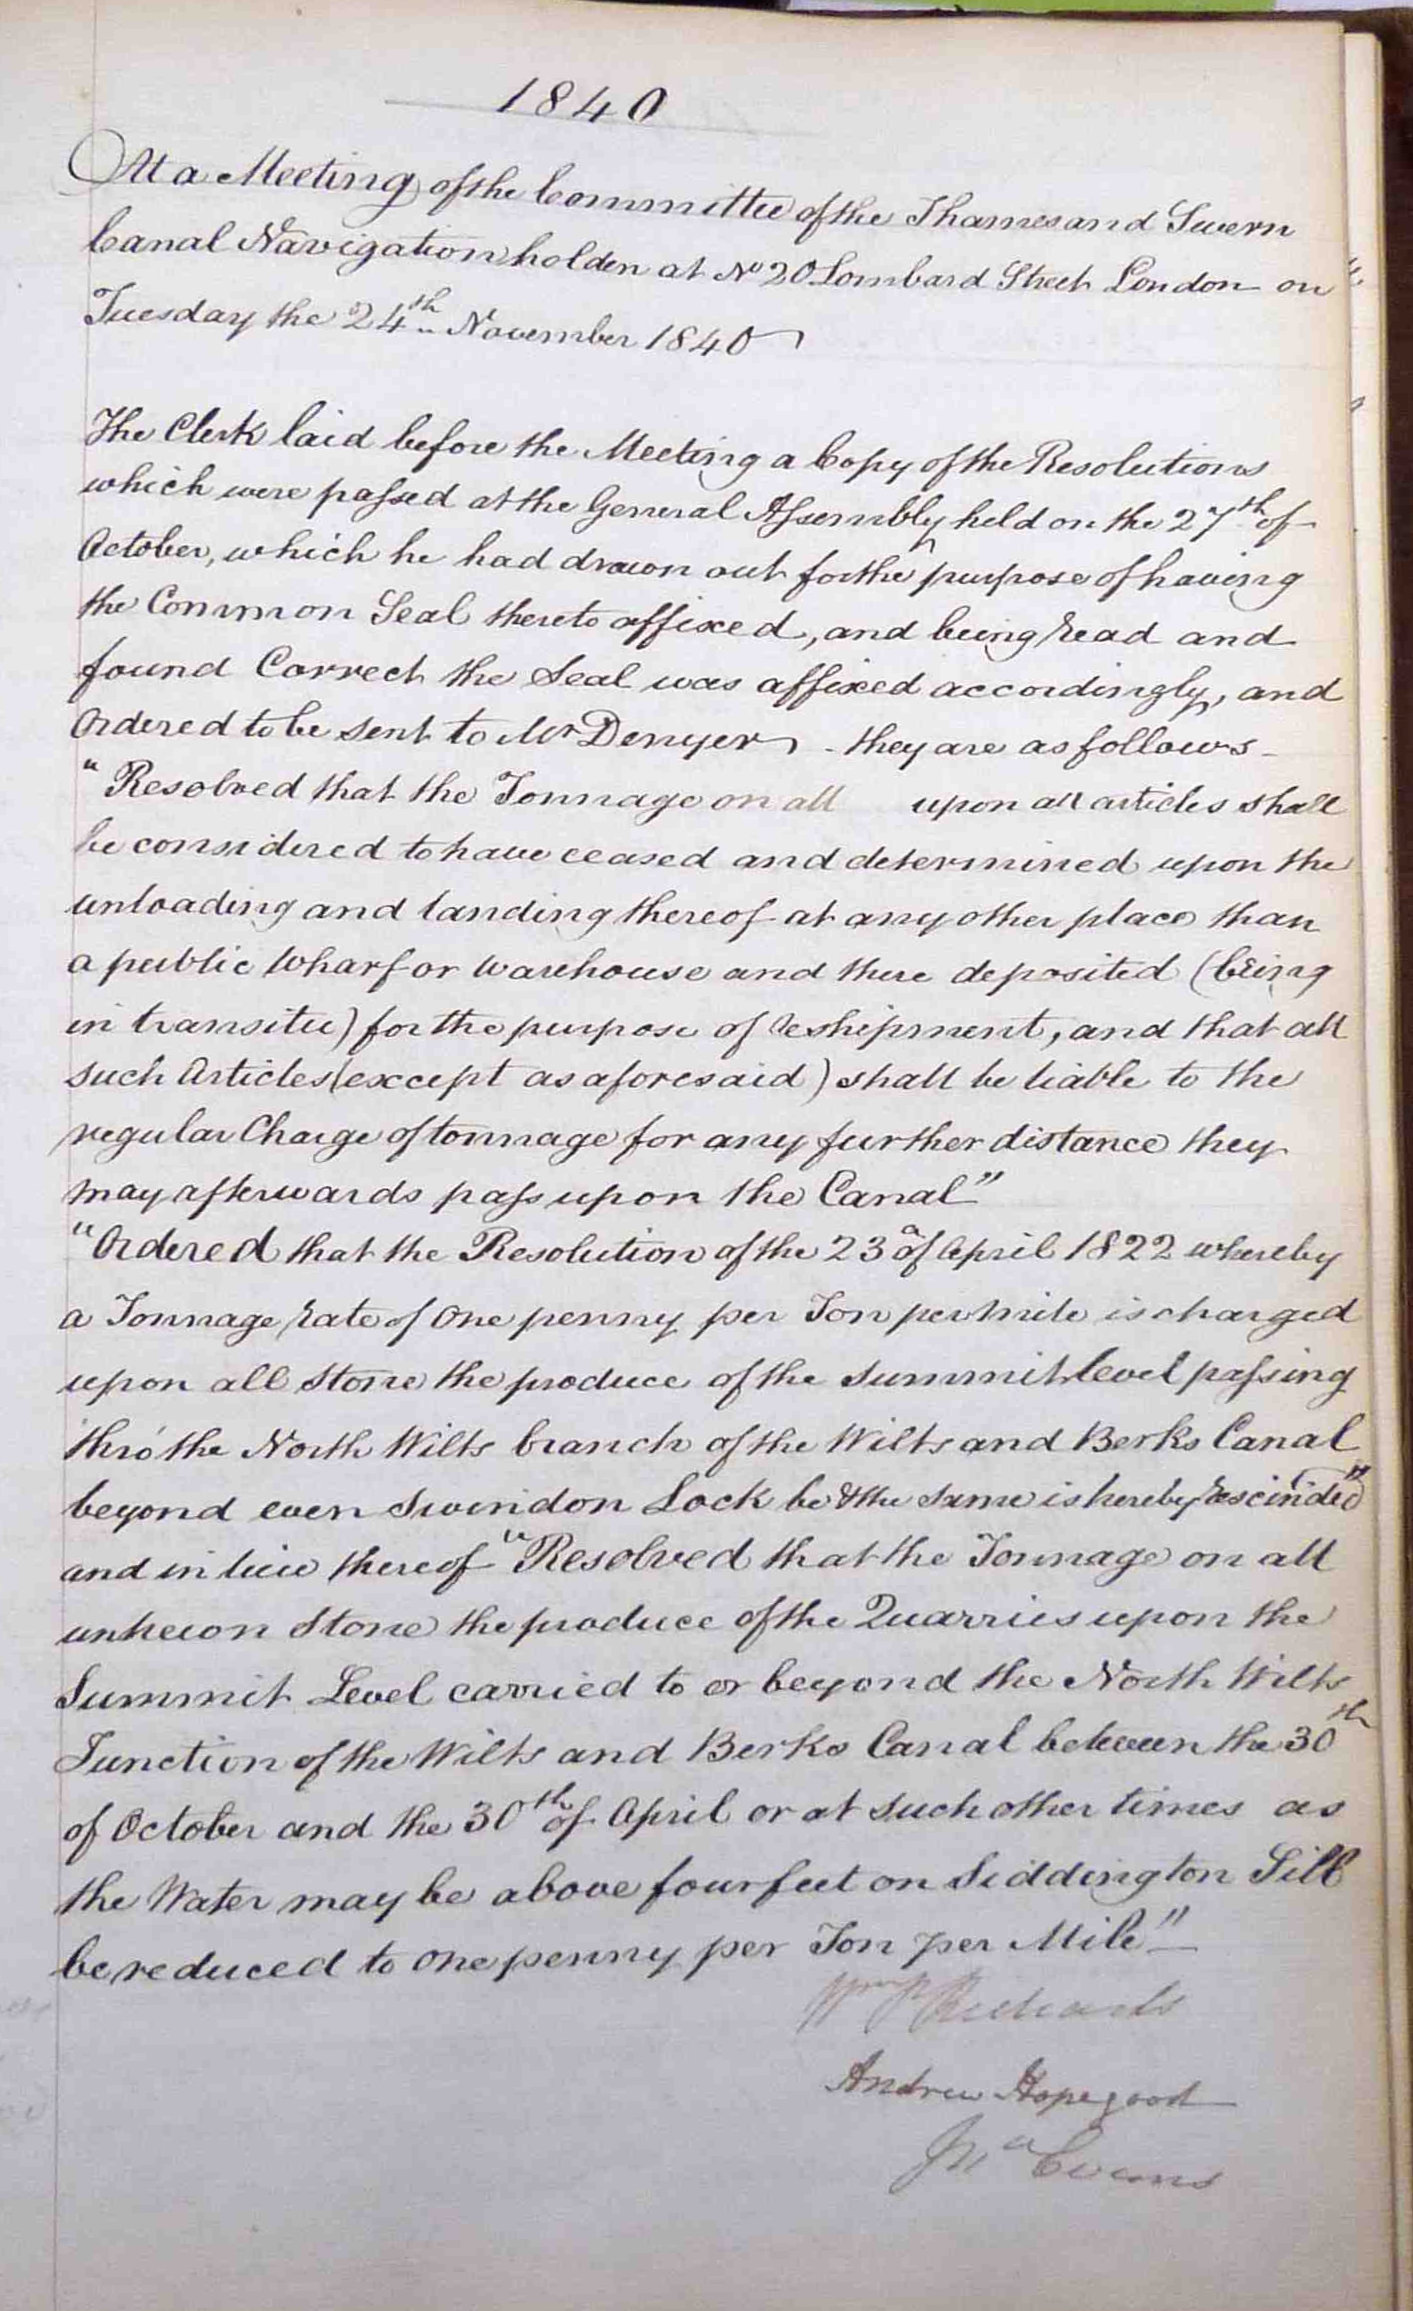 1840
At a Meeting of the Committee of the Thames and Severn
Canal Navigation holden at No 20 Lombard Street London on
Tuesday the 24th November 1840
The Clerk laid before the Meeting a Copy of the Resolutions
which were passed at the General Assembly held on the 27th of
October, which he had drawn out for the purpose of having
the Common Seal thereto affixed, and being read and
found Correct the Seal was affixed accordingly, and
Ordered to be sent to Mr Denyer - they are as follows -
"Resolved that the Tonnage on all upon all articles shall
be considered to have ceased and determined upon the
unloading and landing thereof at any other place than
a public Wharf or Warehouse and there deposited (being
in transitu) for the purpose of reshipment, and that all
such Articles (except as aforesaid) shall be liable to the
regular Charge of tonnage for any further distance they
may afterwards pass upon the Canal"
"Ordered that the Resolution of the 23d of April 1822 whereby
a Tonnage rate of One penny per Ton per Mile is charged
upon all Stone the produce of the Summit level passing
thro' the North Wilts branch of the Wilts and Berks Canal
beyond even Swindon Lock be & the same is hereby rescinded"
and in lieu thereof "Resolved that the Tonnage on all
unhewn Stone the produce of the Quarries upon the
Summit Level carried to or beyond the North Wilts
Junction of the Wilts and Berks Canal between the 30th
of October and the 30th of April or at such other times as
the Water may be above four feet on Siddington Sill
be reduced to One penny per Ton per Mile" -
Richards
Andrew Hopegood
Jno Evans